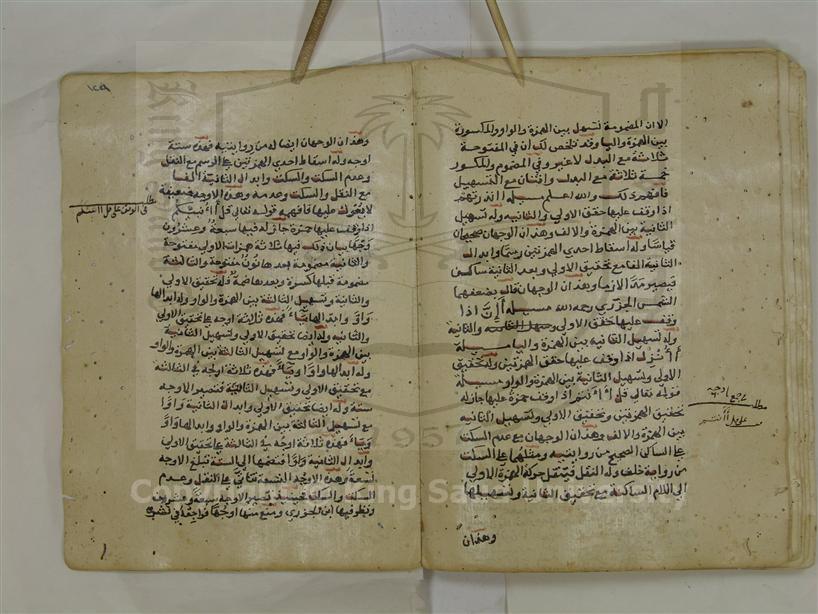 الا ان المضمومة تسهل بين الهمزة والواو والمكسورة
بين الهمزة والياء وقد تلخص لك ان في المفتوحة
ثلاثة مع البدل لا غير وفي المضموم والمكسور
خمسة ثلاثة مع البدل واثنتان مع التسهيل
فافهم ذلك والله اعلم مسيلة
اذا وقف عليها حقق الاولى والثانية وله تسهيل
الثانية بين الهمزة والالف وهذان الوجهان صحيحان
قياسا وله اسقاط احدى الهمزتين رسما وابدال
الثانية الفا مع تحقيق الاولى وبعد الثانية ساكن
فيصير مدا لازما وهذان الوجهان قال بضعفهما
الشمس الجزري رحمه الله مسيلة أإنا اذا
وقف عليها حقق الاولى والثانية
وله تسهيل الثانية بين الهمزة والياء مسيلة
أأنزل اذا وقف عليها حقق الهمزتين وله تحقيق
الاولى وتسهيل الثانية بين الهمزة والواو مسيلة
قوله تعالى قل أأنتم اذا وقف حمزة عليها جاز له
تحقيق الهمزتين وتحقيق الاولى وتسهيل الثانية
بين الهمزة والالف وهذان الوجهان مع عدم السكت
على الساكن الصحيح من روايتيه ومثلهما على السكت
من رواية خلف وله النقل فينتقل حركة الهمزة الاولى
الى اللام الساكنة مع تحقيق الثانية وتسهيلها
وهذان
مطلب
وهذان الوجهان ايضا له من روايتيه فهذه ستة
اوجه وله اسقاط احدى الهمزتين على الرسم مع النقل
وعدم السكت والسكت وابدال الثانية الفا
مع النقل والسكت وعدمه وهذه الاوجه ضعيفة
لا يعول عليها فافهم قوله تعالى قل أأنبئكم
اذا وقف عليها حمزة جاز له فيها سبعة وعشرون
وجها بيان ذلك فيها ثلاثة همزات الاولى مفتوحة
والثانية مضمومة بعدها نون مفتوحة والثالثة
مضمومة قبلها كسرة وبعدها ضمة فله تحقيق الاولى
والثانية وتسهيل الثالثة بين الهمزة والواو وله ابدالها
واوا وابدالها ياء فهذه ثلاثة اوجه على تحقيق الاولى
والثانية وله ايضا تحقيق الاولى وتسهيل الثانية
بين الهمزة والواو مع تسهيل الثالثة بين الهمزة والواو
وله ابدالها واوا وياء فهذه ثلاثة اوجه في الثالثة
مع تحقيق الاولى وتسهيل الثانية فتصير الاوجه
ستة وله ايضا تحقيق الاولى وابدال الثانية واوا
مع تسهيل الثالثة بين الهمزة والواو وابدالها واوا
وياء فهذه ثلاثة اوجه في الثالثة على تحقيق الاولى
وابدال الثانية واوا فتضمها الى الستة تبلغ الاوجه
تسعة وهذه الاوجه التسعة تاتي على النقل وعدم
السكت والسكت فحينئذ تصير الاوجه سبعة وعشرون
ونظر فيها ابن الجزري ومنع منها اوجها فراجعه في نشره
مطلب